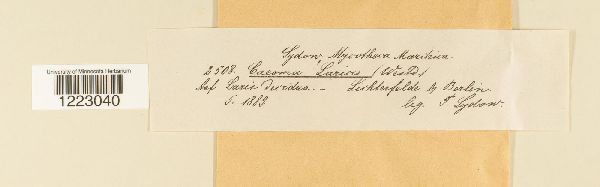 University of Minnesota Herbarium
1223040
Sydow, Mycotheca Marchica.
2508. Caeoma Laricis (Westd)
Auf Larix decidua. - Lichterfelde b. Berlin.
5. 1889 leg. P. Sydow.